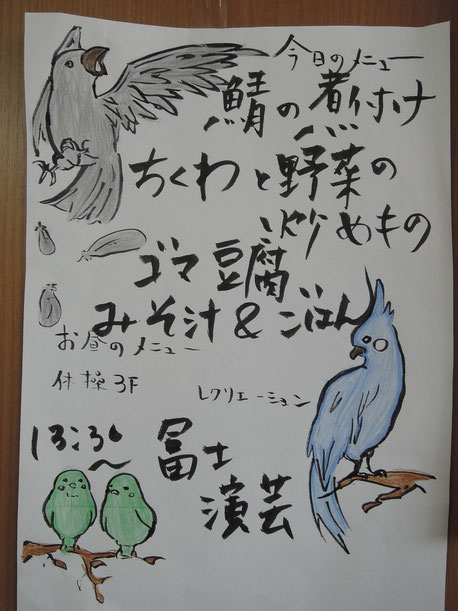 今日のメニュー
鯖の煮付け
ちくわと野菜の
炒めもの
ゴマ豆腐
みそ汁&ごはん
お昼のメニュー
体操3F
レクリエーション
冨士
演芸